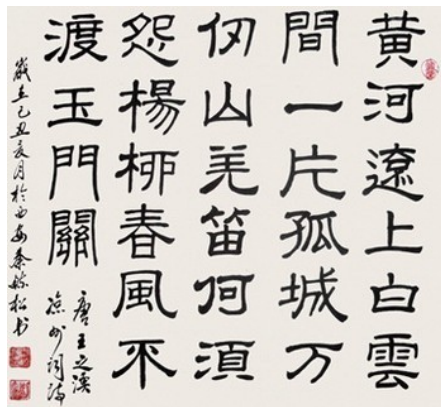 黄河遼上白雲
間一片孤城万
仞山羌笛何須
怨楊柳春風不
渡玉門關
唐王之渙
涼州詞詩
歲在己丑夏月於西安秦毓松书